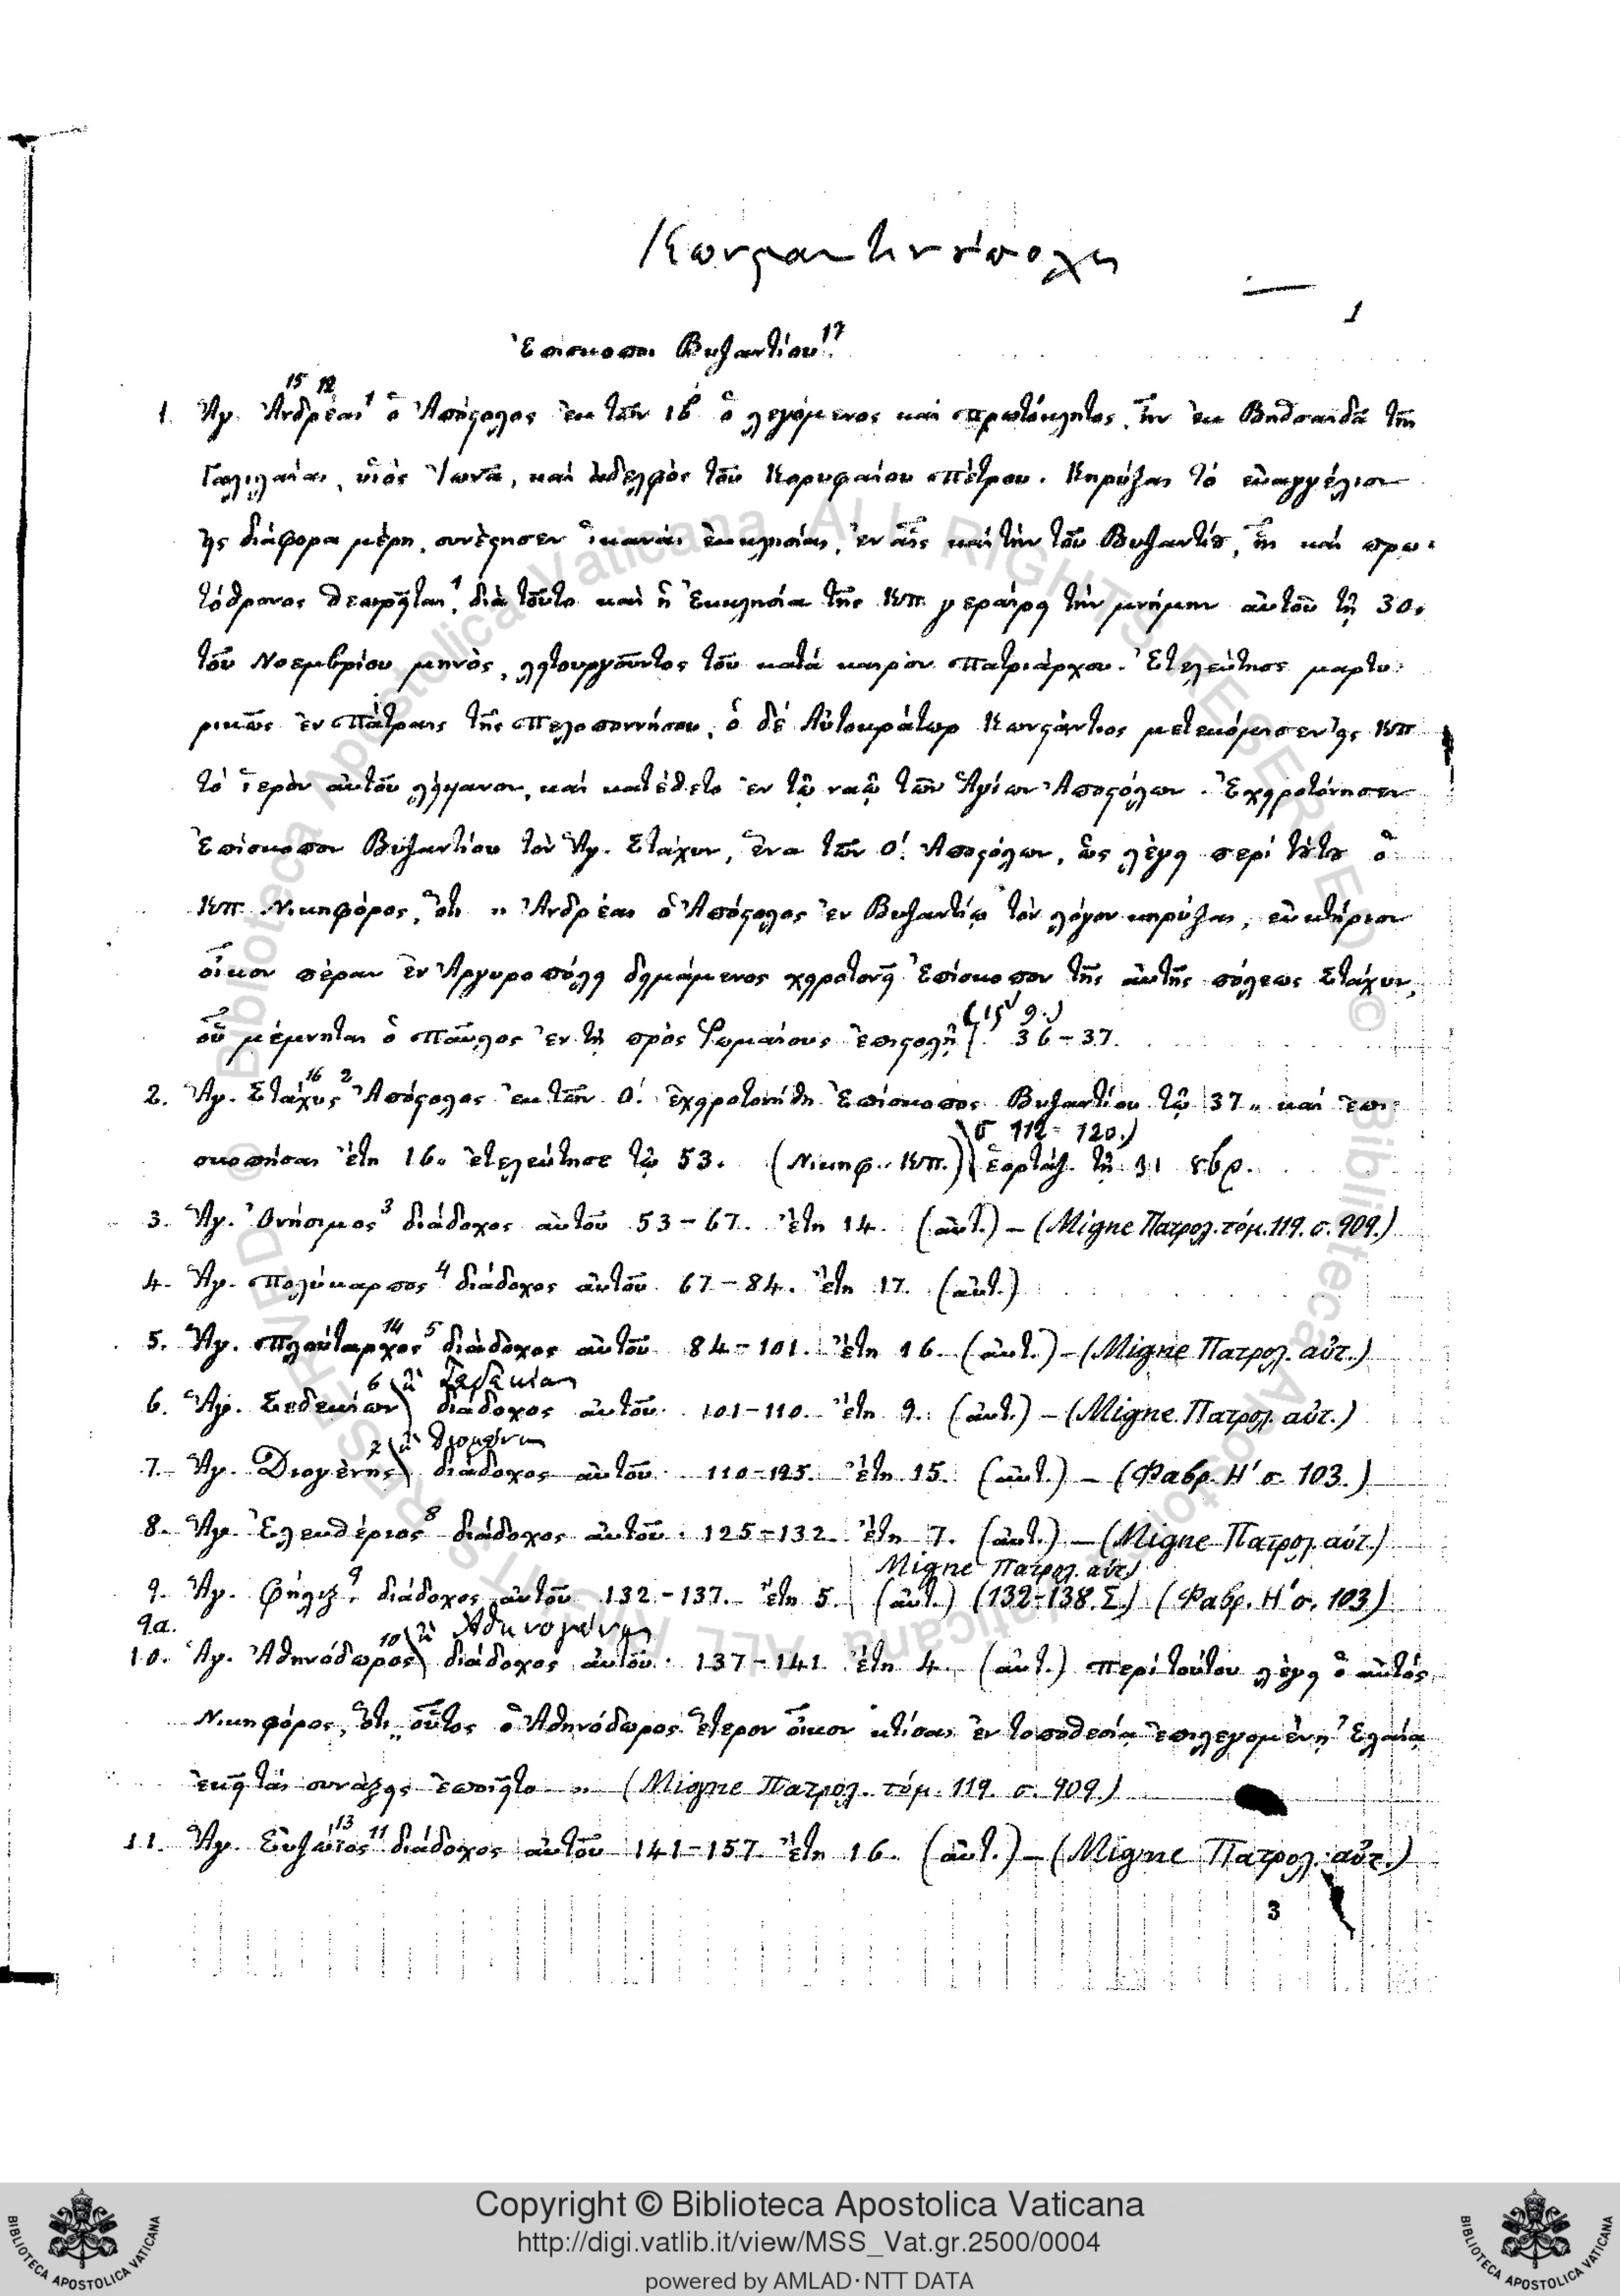 Κωνσταντινούπολις
1
Ἐπίσκοποι Βυζαντίου 17
15 12
1. Ἅγ. Ἀνδρέας 1 ὁ Ἀπόστολος ἐκ τῶν ιβ΄ ὁ λεγόμενος καὶ πρωτόκλητος, ἦν ἐκ Βηθσαϊδᾶ τῆς
Γαλιλαίας, υἱὸς Ἰωνᾶ, καὶ ἀδελφὸς τοῦ Κορυφαίου Πέτρου. Κηρύξας τὸ εὐαγγέλιον
εἰς διάφορα μέρη, συνέστησεν ἱκανὰς ἐκκλησίας, ἐν αἷς καὶ τὴν τοῦ Βυζαντίου, ἧς καὶ πρω-
τόθρονος θεωρεῖται 1, διὰ τοῦτο καὶ ἡ Ἐκκλησία τῆς Κπ. γεραίρει τὴν μνήμην αὐτοῦ τῇ 30.
τοῦ Νοεμβρίου μηνὸς, λειτουργοῦντος τοῦ κατὰ καιρὸν Πατριάρχου. Ἐτελεύτησε μαρτυ-
ρικῶς ἐν Πάτραις τῆς Πελοποννήσου, ὁ δὲ Αὐτοκράτωρ Κωνστάντιος μετεκόμισεν εἰς Κπ
τὸ ἱερὸν αὐτοῦ λείψανον, καὶ κατέθετο ἐν τῷ ναῷ τῶν Ἁγίων Ἀποστόλων. Ἐχειροτόνησεν
Ἐπίσκοπον Βυζαντίου τὸν Ἅγ. Στάχυν, ἕνα τῶν Ο΄. Ἀποστόλων, ὡς λέγει περὶ τούτου ὁ
Κπ. Νικηφόρος, ὅτι „ Ἀνδρέας ὁ Ἀπόστολος ἐν Βυζαντίῳ τὸν λόγον κηρύξας, εὐκτήριον
οἶκον πέραν ἐν Ἀργυροπόλει δειμάμενος χειροτονεῖ Ἐπίσκοπον τῆς αὐτῆς πόλεως Στάχυν,
(ις΄ 9.)
οὗ μέμνηται ὁ Παῦλος ἐν τῇ πρὸς Ῥωμαίους ἐπιστολῇ 36-37.
16 2
2. Ἅγ. Στάχυς Ἀπόστολος ἐκ τῶν Ο΄. ἐχειροτονήθη Ἐπίσκοπος Βυζαντίου τῷ 37 „ καὶ ἐπι-
σ 112-120.)
σκοπήσας ἔτη 16. ἐτελεύτησε τῷ 53. (Νικηφ. Κπ.) ἑορτάζ. τῇ 31 8βρ.
3. Ἅγ. Ὀνήσιμος 3 διάδοχος αὐτοῦ 53-67. ἔτη 14. (αὐτ.) - (Migne Πατρολ. τόμ. 119. σ. 909.)
4. Ἅγ. Πολύκαρπος 4 διάδοχος αὐτοῦ 67-84. ἔτη 17. (αὐτ.)
14 5
5. Ἅγ. Πλούταρχος διάδοχος αὐτοῦ 84-101. ἔτη 16. (αὐτ.) - (Migne Πατρολ. αὐτ.)
6 ἢ Σεδεκίας
6. Ἅγ. Σεδεκίων διάδοχος αὐτοῦ 101-110. ἔτη 9. (αὐτ.) - (Migne Πατρολ. αὐτ.)
7 ἢ Διομένης
7. Ἅγ. Διογένης διάδοχος αὐτοῦ 110-125. ἔτη 15. (αὐτ.) - (Φαβρ. Η΄ σ. 103.)
8. Ἅγ. Ἐλευθέριος 8 διάδοχος αὐτοῦ 125-132. ἔτη 7. (αὐτ.) - (Migne Πατρολ. αὐτ.)
Migne Πατρολ. αὐτ.)
9. Ἅγ. Φήλιξ 9 διάδοχος αὐτοῦ 132-137. ἔτη 5. (αὐτ.) (132-138. Σ.) (Φαβρ. Η΄ σ. 103)
9α.
10 ἢ Ἀθηνογένης
10. Ἅγ. Ἀθηνόδωρος διάδοχος αὐτοῦ 137-141 ἔτη 4. (αὐτ.) περὶ τούτου λέγει ὁ αὐτὸς
Νικηφόρος, ὅτι „ οὗτος ὁ Ἀθηνόδωρος ἕτερον οἶκον κτίσας ἐν τοποθεσίᾳ ἐπιλεγομένῃ Ἐλαίᾳ
ἐκεῖ τὰς συνάξεις ἐποιεῖτο „ (Migne Πατρολ. τόμ. 119. σ. 909.)
13 11
11. Ἅγ. Εὐζώϊος διάδοχος αὐτοῦ 141-157. ἔτη 16. (αὐτ.) - (Migne Πατρολ. αὐτ.)
3
© Biblioteca Apostolica Vaticana ALL RIGHTS RESERVED
Copyright © Biblioteca Apostolica Vaticana
http://digi.vatlib.it/view/MSS_Vat.gr.2500/0004
powered by AMLAD·NTT DATA
BIBLIOTECA APOSTOLICA VATICANA
BIBLIOTECA APOSTOLICA VATICANA